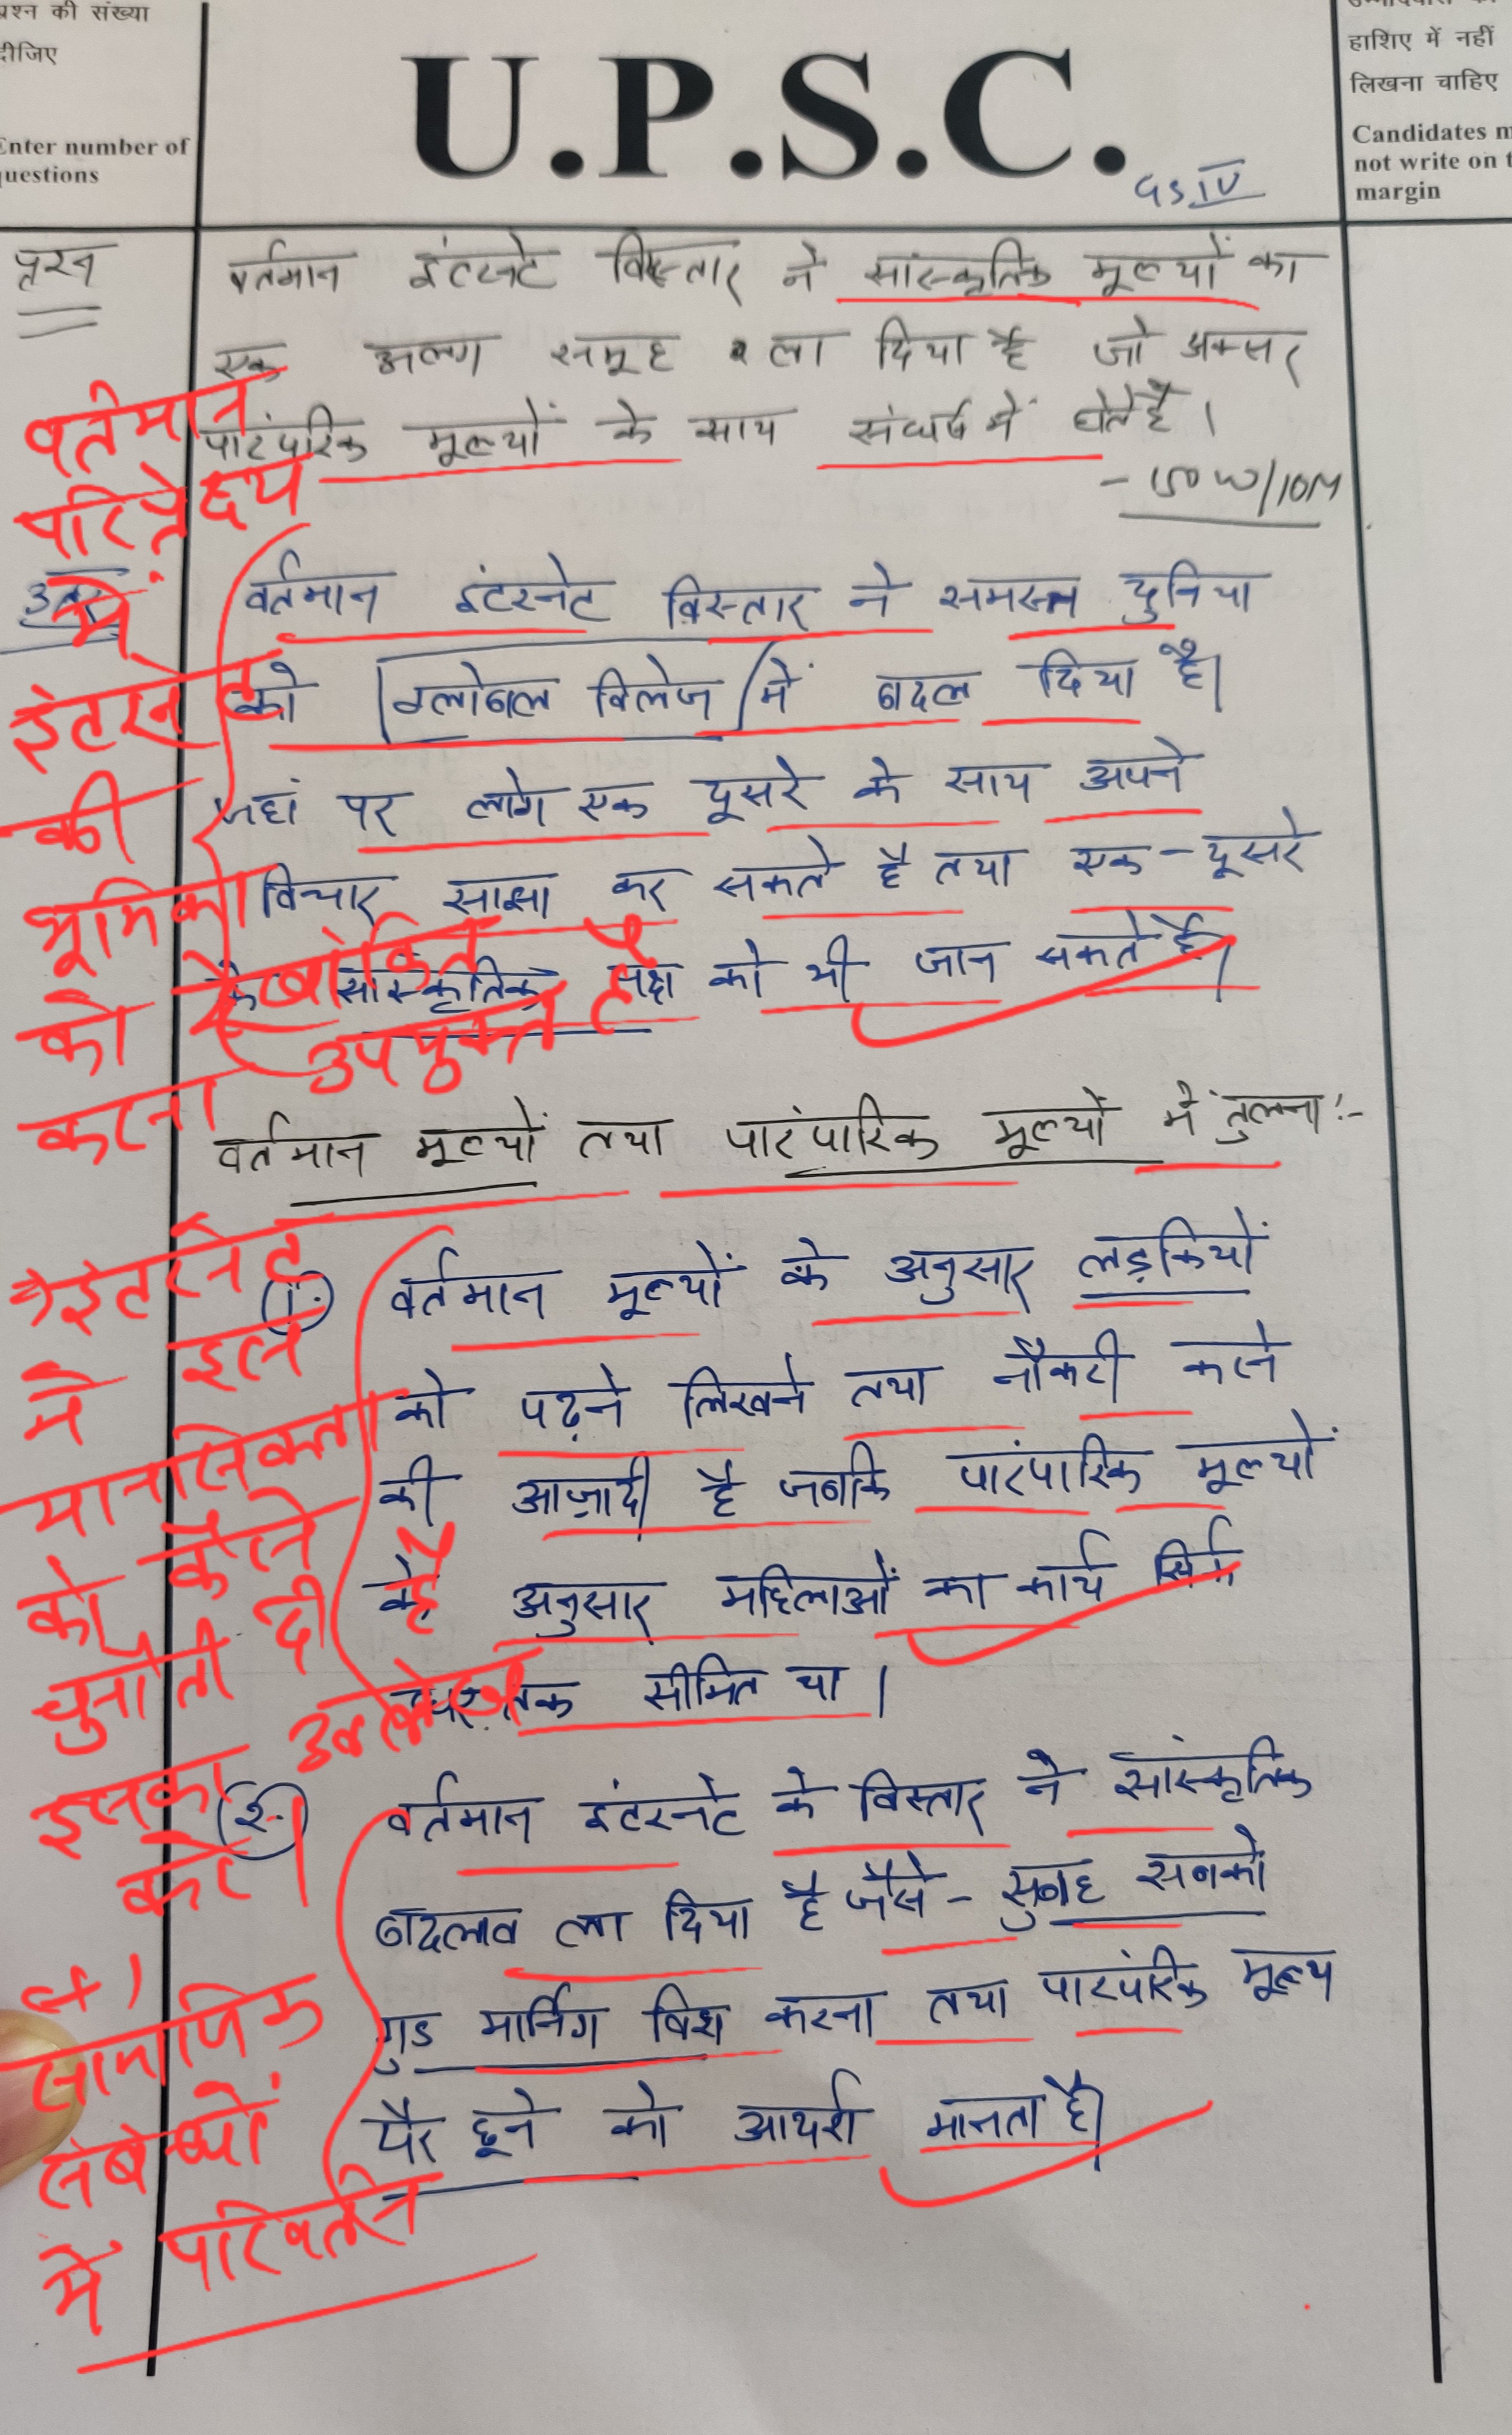 प्रश्न की संख्या
दीजिए
Enter number of
questions
U.P.S.C.
GS IV
हाशिए में नहीं
लिखना चाहिए
Candidates m
not write on t
margin
प्रश्न
वर्तमान इंटरनेट विस्तार ने सांस्कृतिक मूल्यों का
एक अलग समूह ला दिया है जो अक्सर
पारंपरिक मूल्यों के साथ संघर्ष में होते है।
- 150 W/10M
उत्तर
वर्तमान इंटरनेट विस्तार ने समस्त दुनिया
को ग्लोबल विलेज में बदल दिया है।
जहां पर लोग एक दूसरे के साथ अपने
विचार साझा कर सकते है तथा एक-दूसरे
के सांस्कृतिक पक्ष को भी जान सकते है।
वर्तमान परिप्रेक्ष्य
में
इंटरनेट
की
भूमिका
को रेखांकित
करना उपयुक्त है
वर्तमान मूल्यों तथा पारंपारिक मूल्यों में तुलना:-
(1.) वर्तमान मूल्यों के अनुसार लड़कियों
को पढ़ने लिखने तथा नौकरी करने
की आज़ादी है जबकि पारंपारिक मूल्यों
के अनुसार महिलाओं का कार्य सिर्फ
घर तक सीमित था।
→ इंटरनेट
ने इस
मानसिकता
को कैसे
चुनौती दी है
इसका उल्लेख
करें।
(2.) वर्तमान इंटरनेट के विस्तार ने सांस्कृतिक
बदलाव ला दिया है जैसे - सुबह सबको
गुड मार्निंग विश करना तथा पारंपरिक मूल्य
पैर छूने को आदर्श मानता है।
सामाजिक
संबंधों
में परिवर्तन